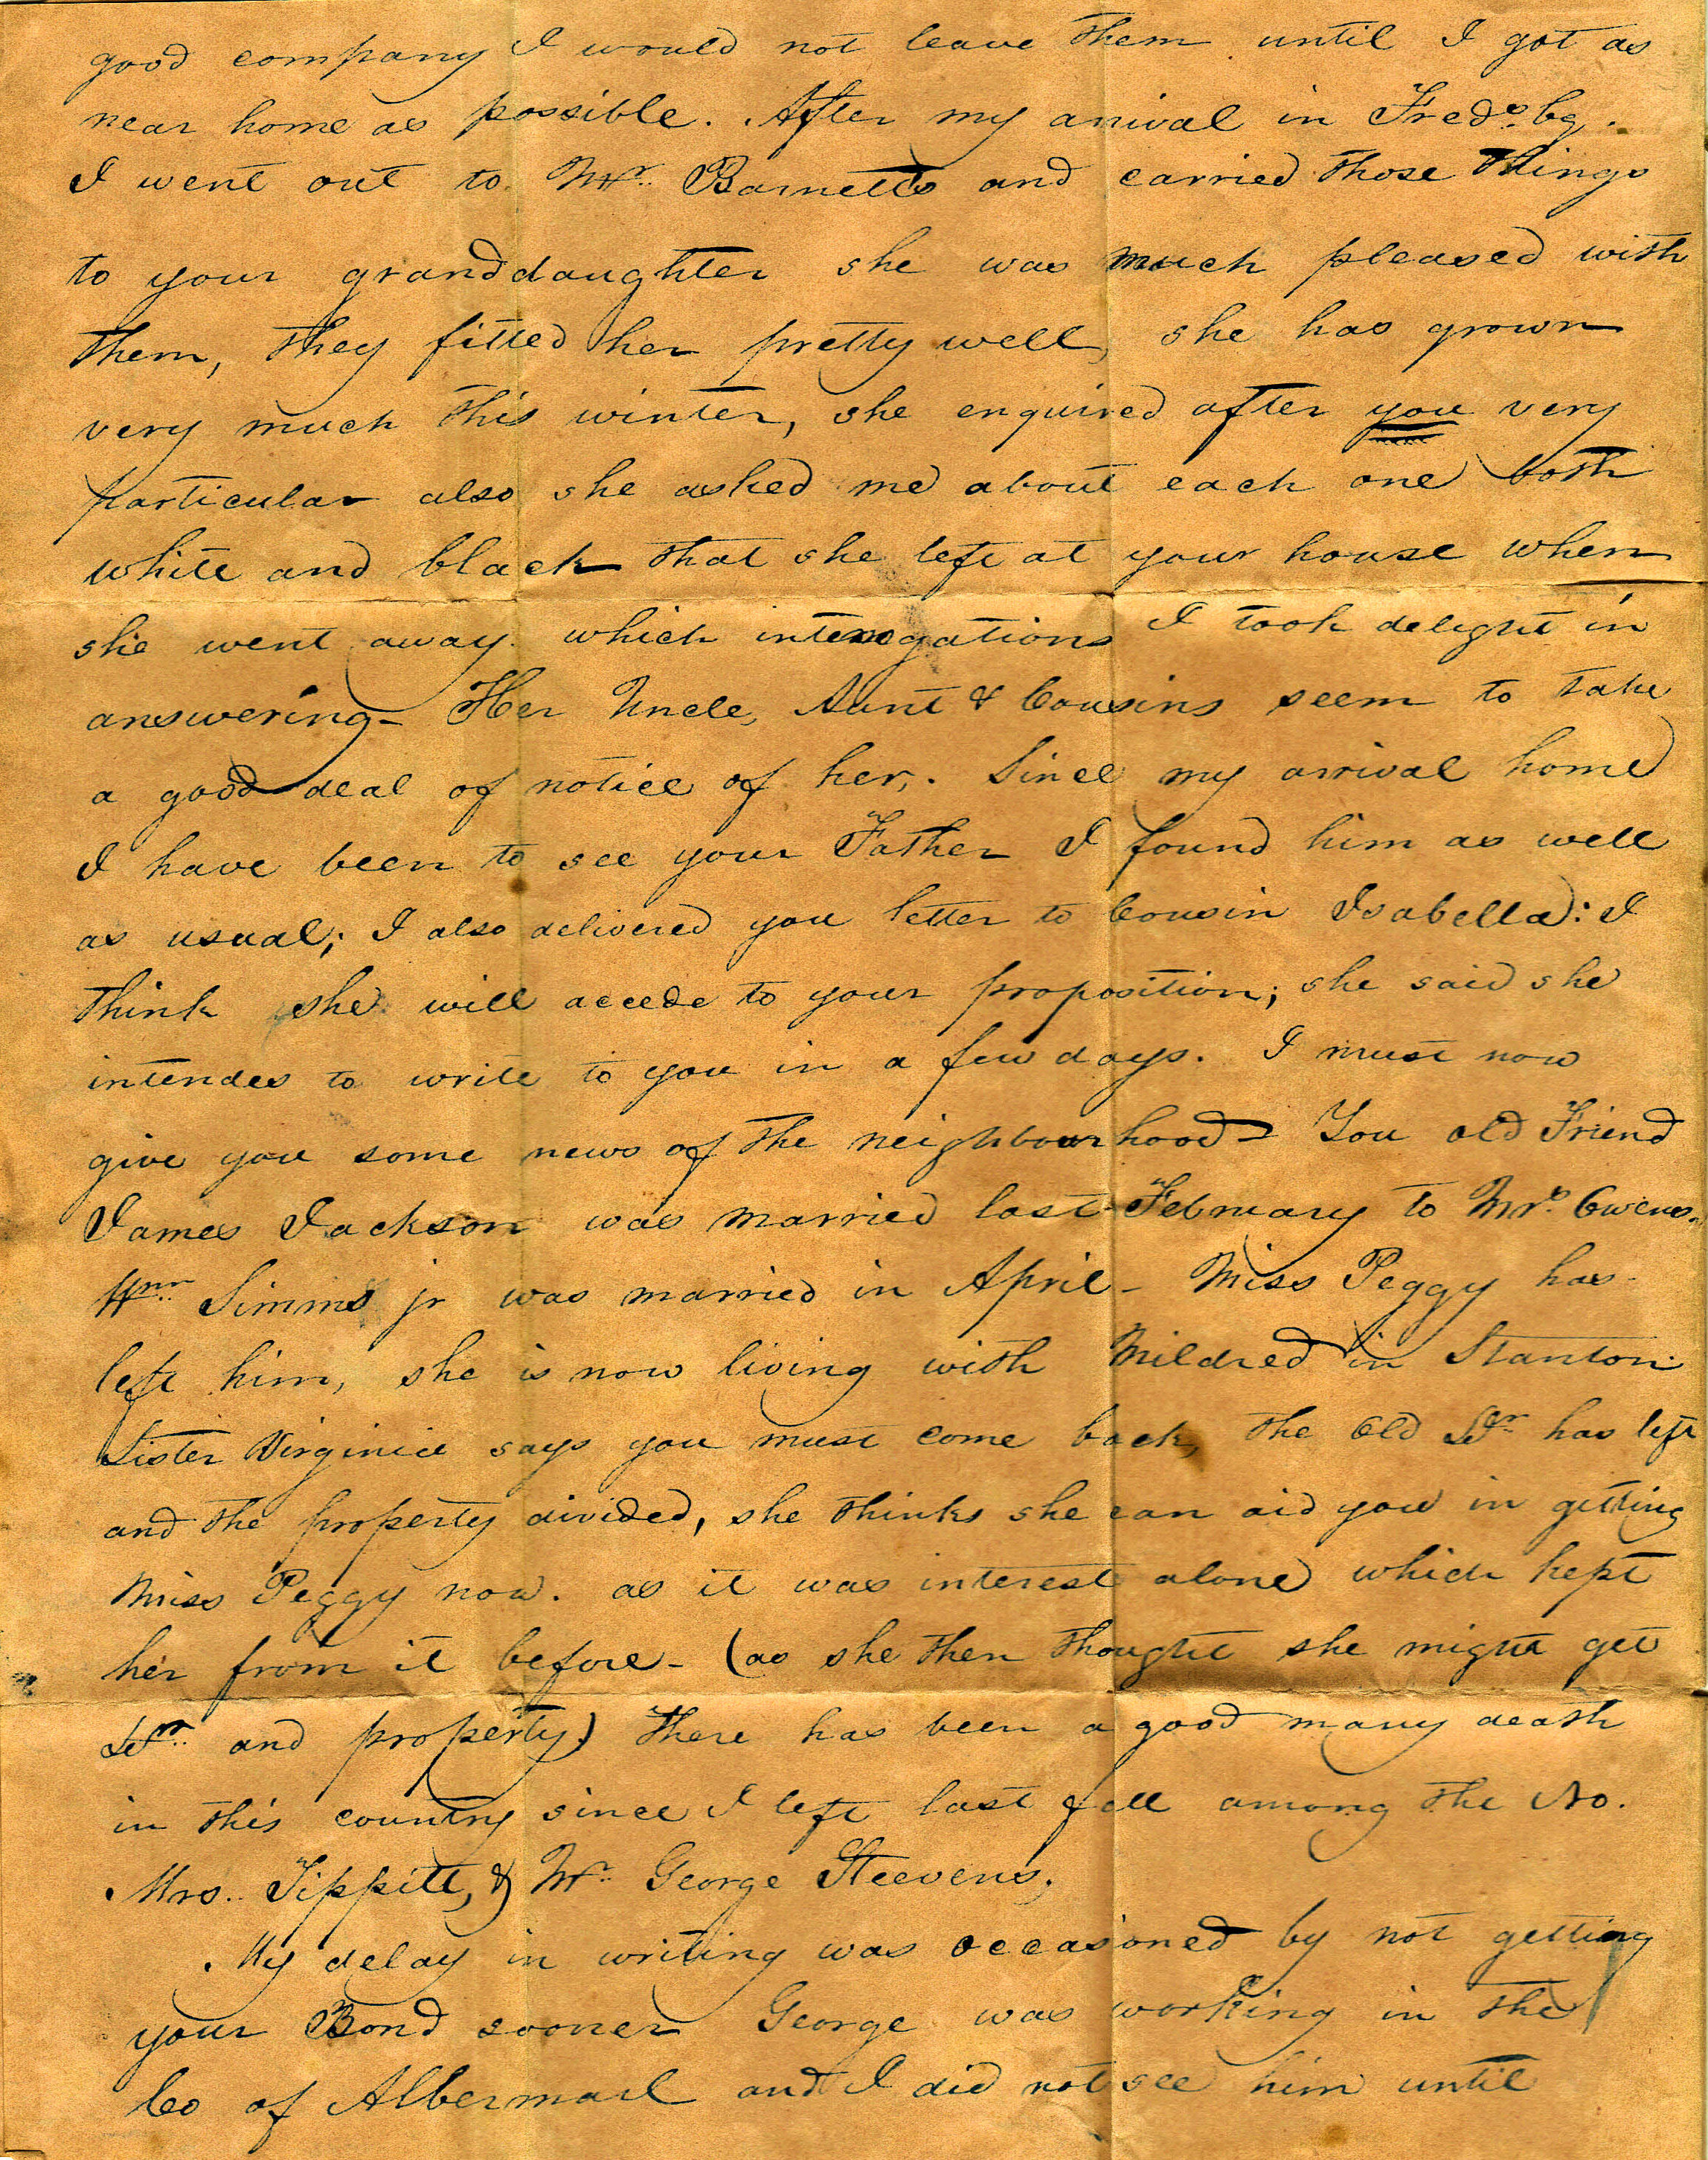 good company I would not leave them until I got as
near home as possible. After my arival in Fredsbg.
I went out to Mr. Barnetts and carried those things
to your granddaughter she was much pleased with
them, they fitted her pretty well, she has grown
very much this winter, she enquired after you very
particular also she asked me about each one both
white and black that she left at your house when
she went away. which interogations I took delight in
answering- Her Uncle, Aunt & Cousins seem to take
a good deal of notice of her,. Since my arrival home
I have been to see your Father I found him as well
as usual; I also delivered you letter to Cousin Isabella: I
think she will accede to your proposition; she said she
intendes to write to you in a few days. I must now
give you some news of the neighbourhood - You old Friend
James Jackson was married last February to Mrs. Owens.
Wm. Simms jr was married in April - Miss Peggy has
left him, she is now living with Mildred in Stanton
Sister Virginia says you must come back, the Old has left
and the property divided, she thinks she can aid you in getting
Miss Peggy now. as it was interest alone which kept
her from it before - (as she then thought she might get
and property) There has been a good many death
in this country since I left last fall among the No.
Mrs. Tippitt, & Mr. George Steevens.
My delay in writing was occasioned by not getting
your Bond sooner George was working in the
Co of Albermarl and I did not see him until